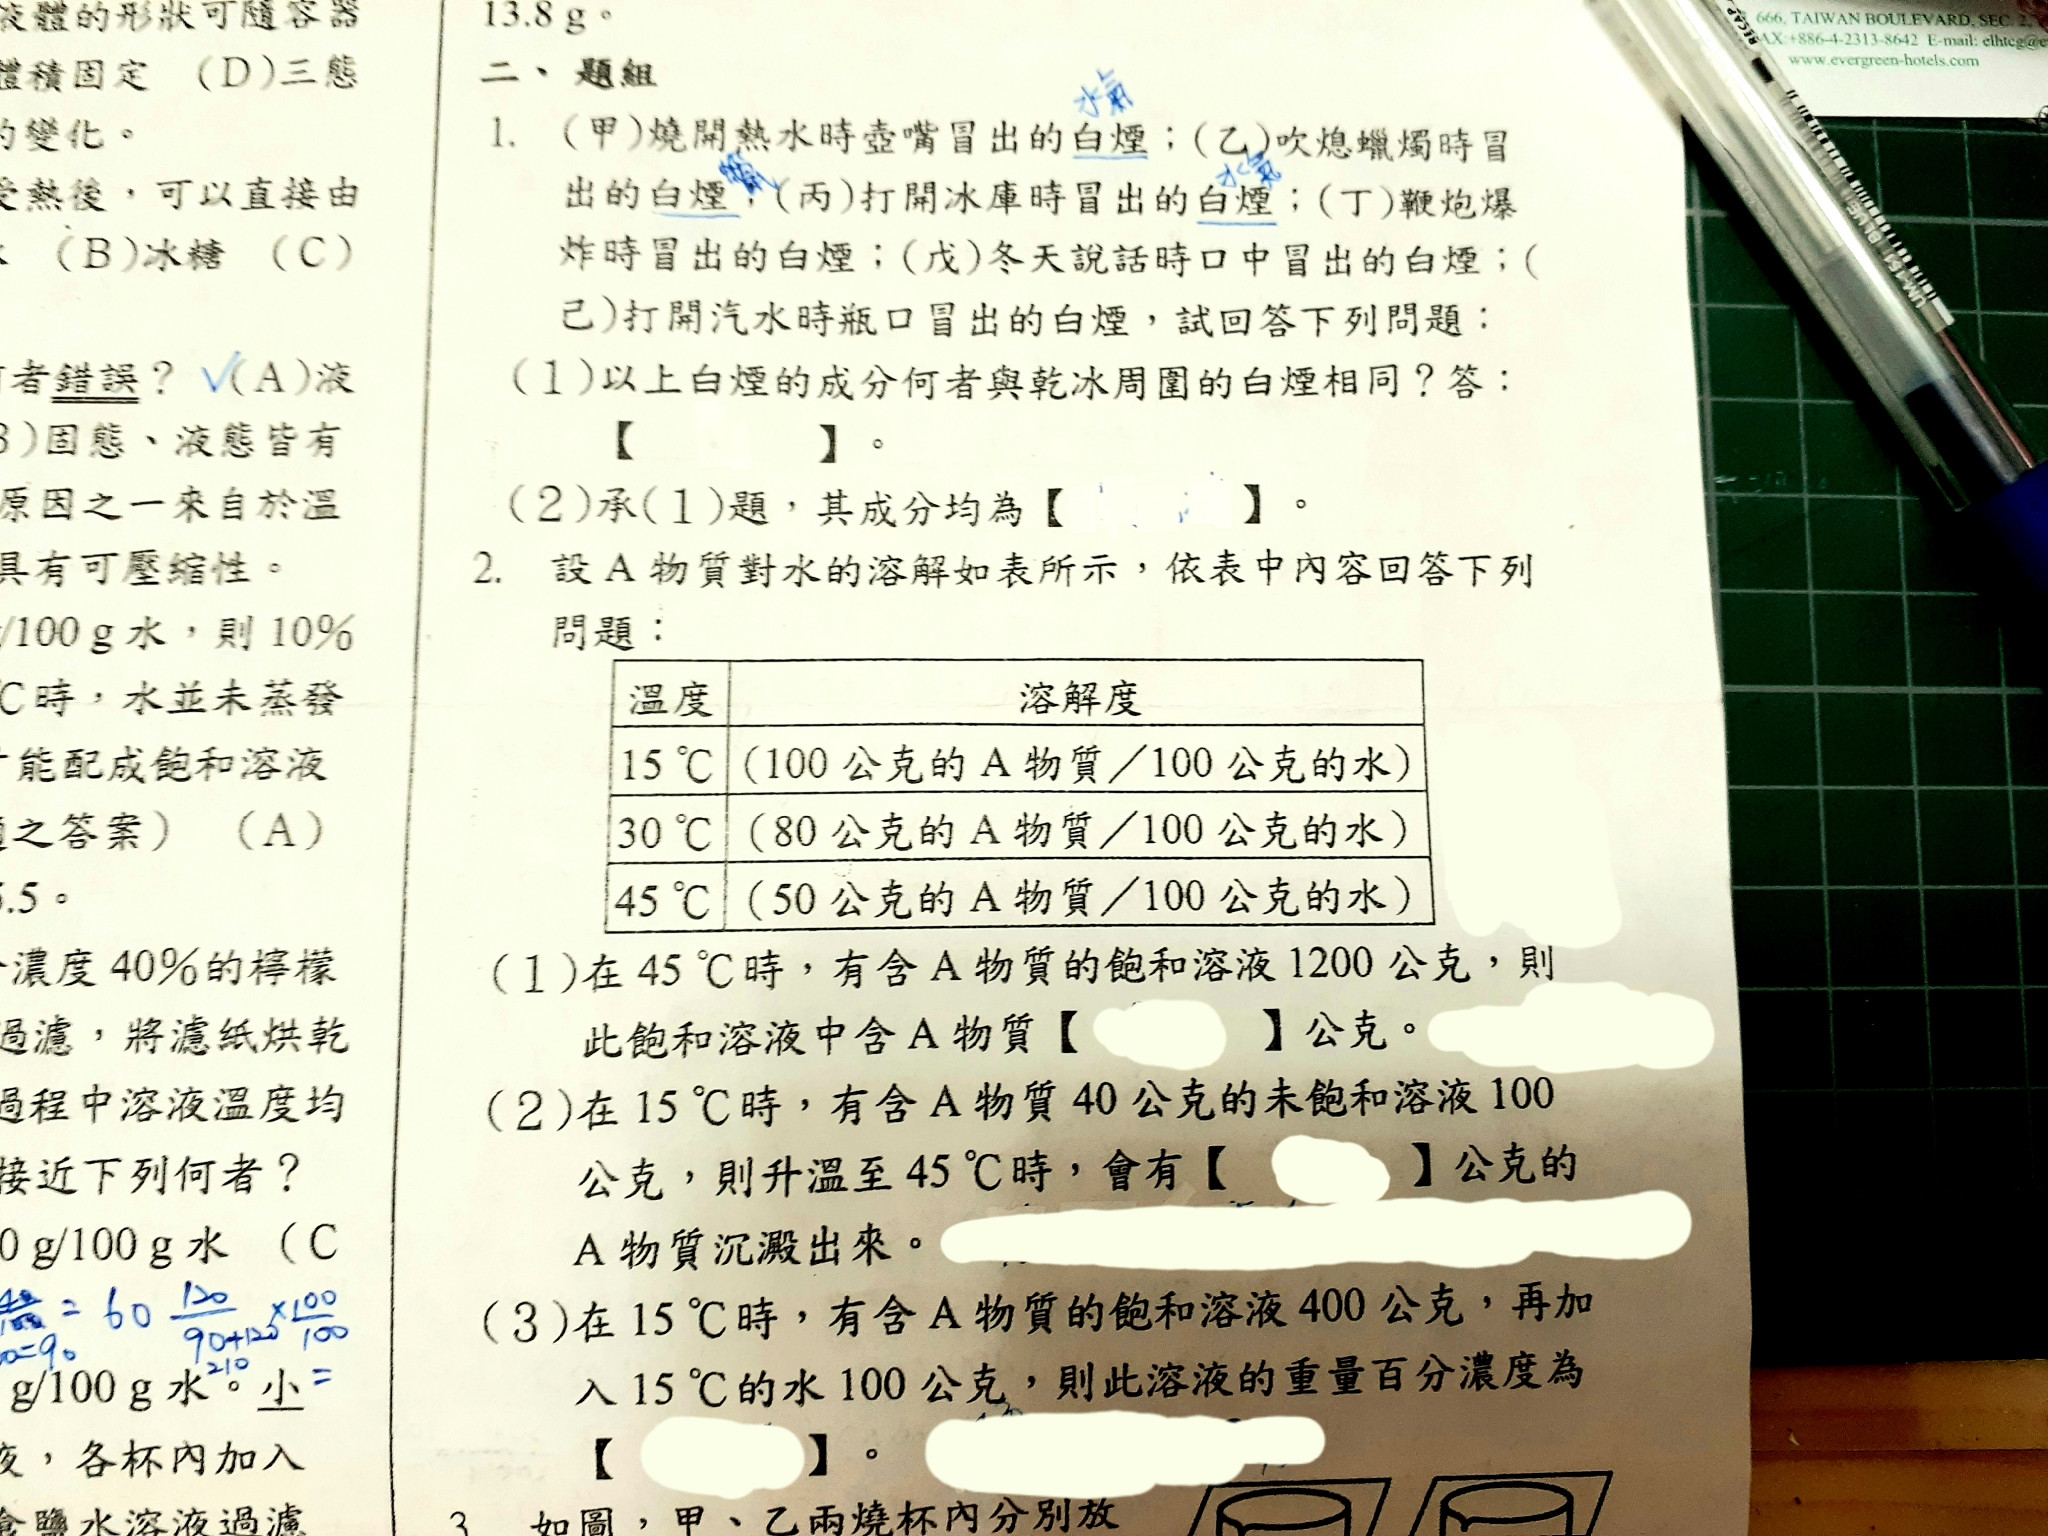 液體的形狀可隨容器
體積固定 (D)三態
的變化。
受熱後，可以直接由
(B)冰糖 (C)
者錯誤？ ✓(A)液
)固態、液態皆有
原因之一來自於溫
具有可壓縮性。
/100 g 水，則 10%
℃時，水並未蒸發
能配成飽和溶液
之答案) (A)
5.5。
濃度 40%的檸檬
過濾，將濾紙烘乾
過程中溶液溫度均
接近下列何者？
0 g/100 g 水 (C
= 60 120/90+120 ×100/100
=90
210
g/100 g 水。小=
液，各杯內加入
食鹽水溶液過濾
13.8 g。
二、題組
水氣
1. (甲)燒開熱水時壺嘴冒出的白煙；(乙)吹熄蠟燭時冒
水氣
出的白煙；(丙)打開冰庫時冒出的白煙；(丁)鞭炮爆
炸時冒出的白煙；(戊)冬天說話時口中冒出的白煙；(
己)打開汽水時瓶口冒出的白煙，試回答下列問題：
(1)以上白煙的成分何者與乾冰周圍的白煙相同？答：
【 】。
(2)承(1)題，其成分均為【 】。
2. 設 A 物質對水的溶解如表所示，依表中內容回答下列
問題：
溫度 溶解度
15 ℃ (100 公克的 A 物質／100 公克的水)
30 ℃ (80 公克的 A 物質／100 公克的水)
45 ℃ (50 公克的 A 物質／100 公克的水)
(1)在 45 ℃時，有含 A 物質的飽和溶液 1200 公克，則
此飽和溶液中含 A 物質【 】公克。
(2)在 15 ℃時，有含 A 物質 40 公克的未飽和溶液 100
公克，則升溫至 45 ℃時，會有【 】公克的
A 物質沉澱出來。
(3)在 15 ℃時，有含 A 物質的飽和溶液 400 公克，再加
入 15 ℃的水 100 公克，則此溶液的重量百分濃度為
【 】。
3. 如圖，甲、乙兩燒杯內分別放
666, TAIWAN BOULEVARD, SEC. 2,
AX:+886-4-2313-8642 E-mail: elhtcg@e
www.evergreen-hotels.com